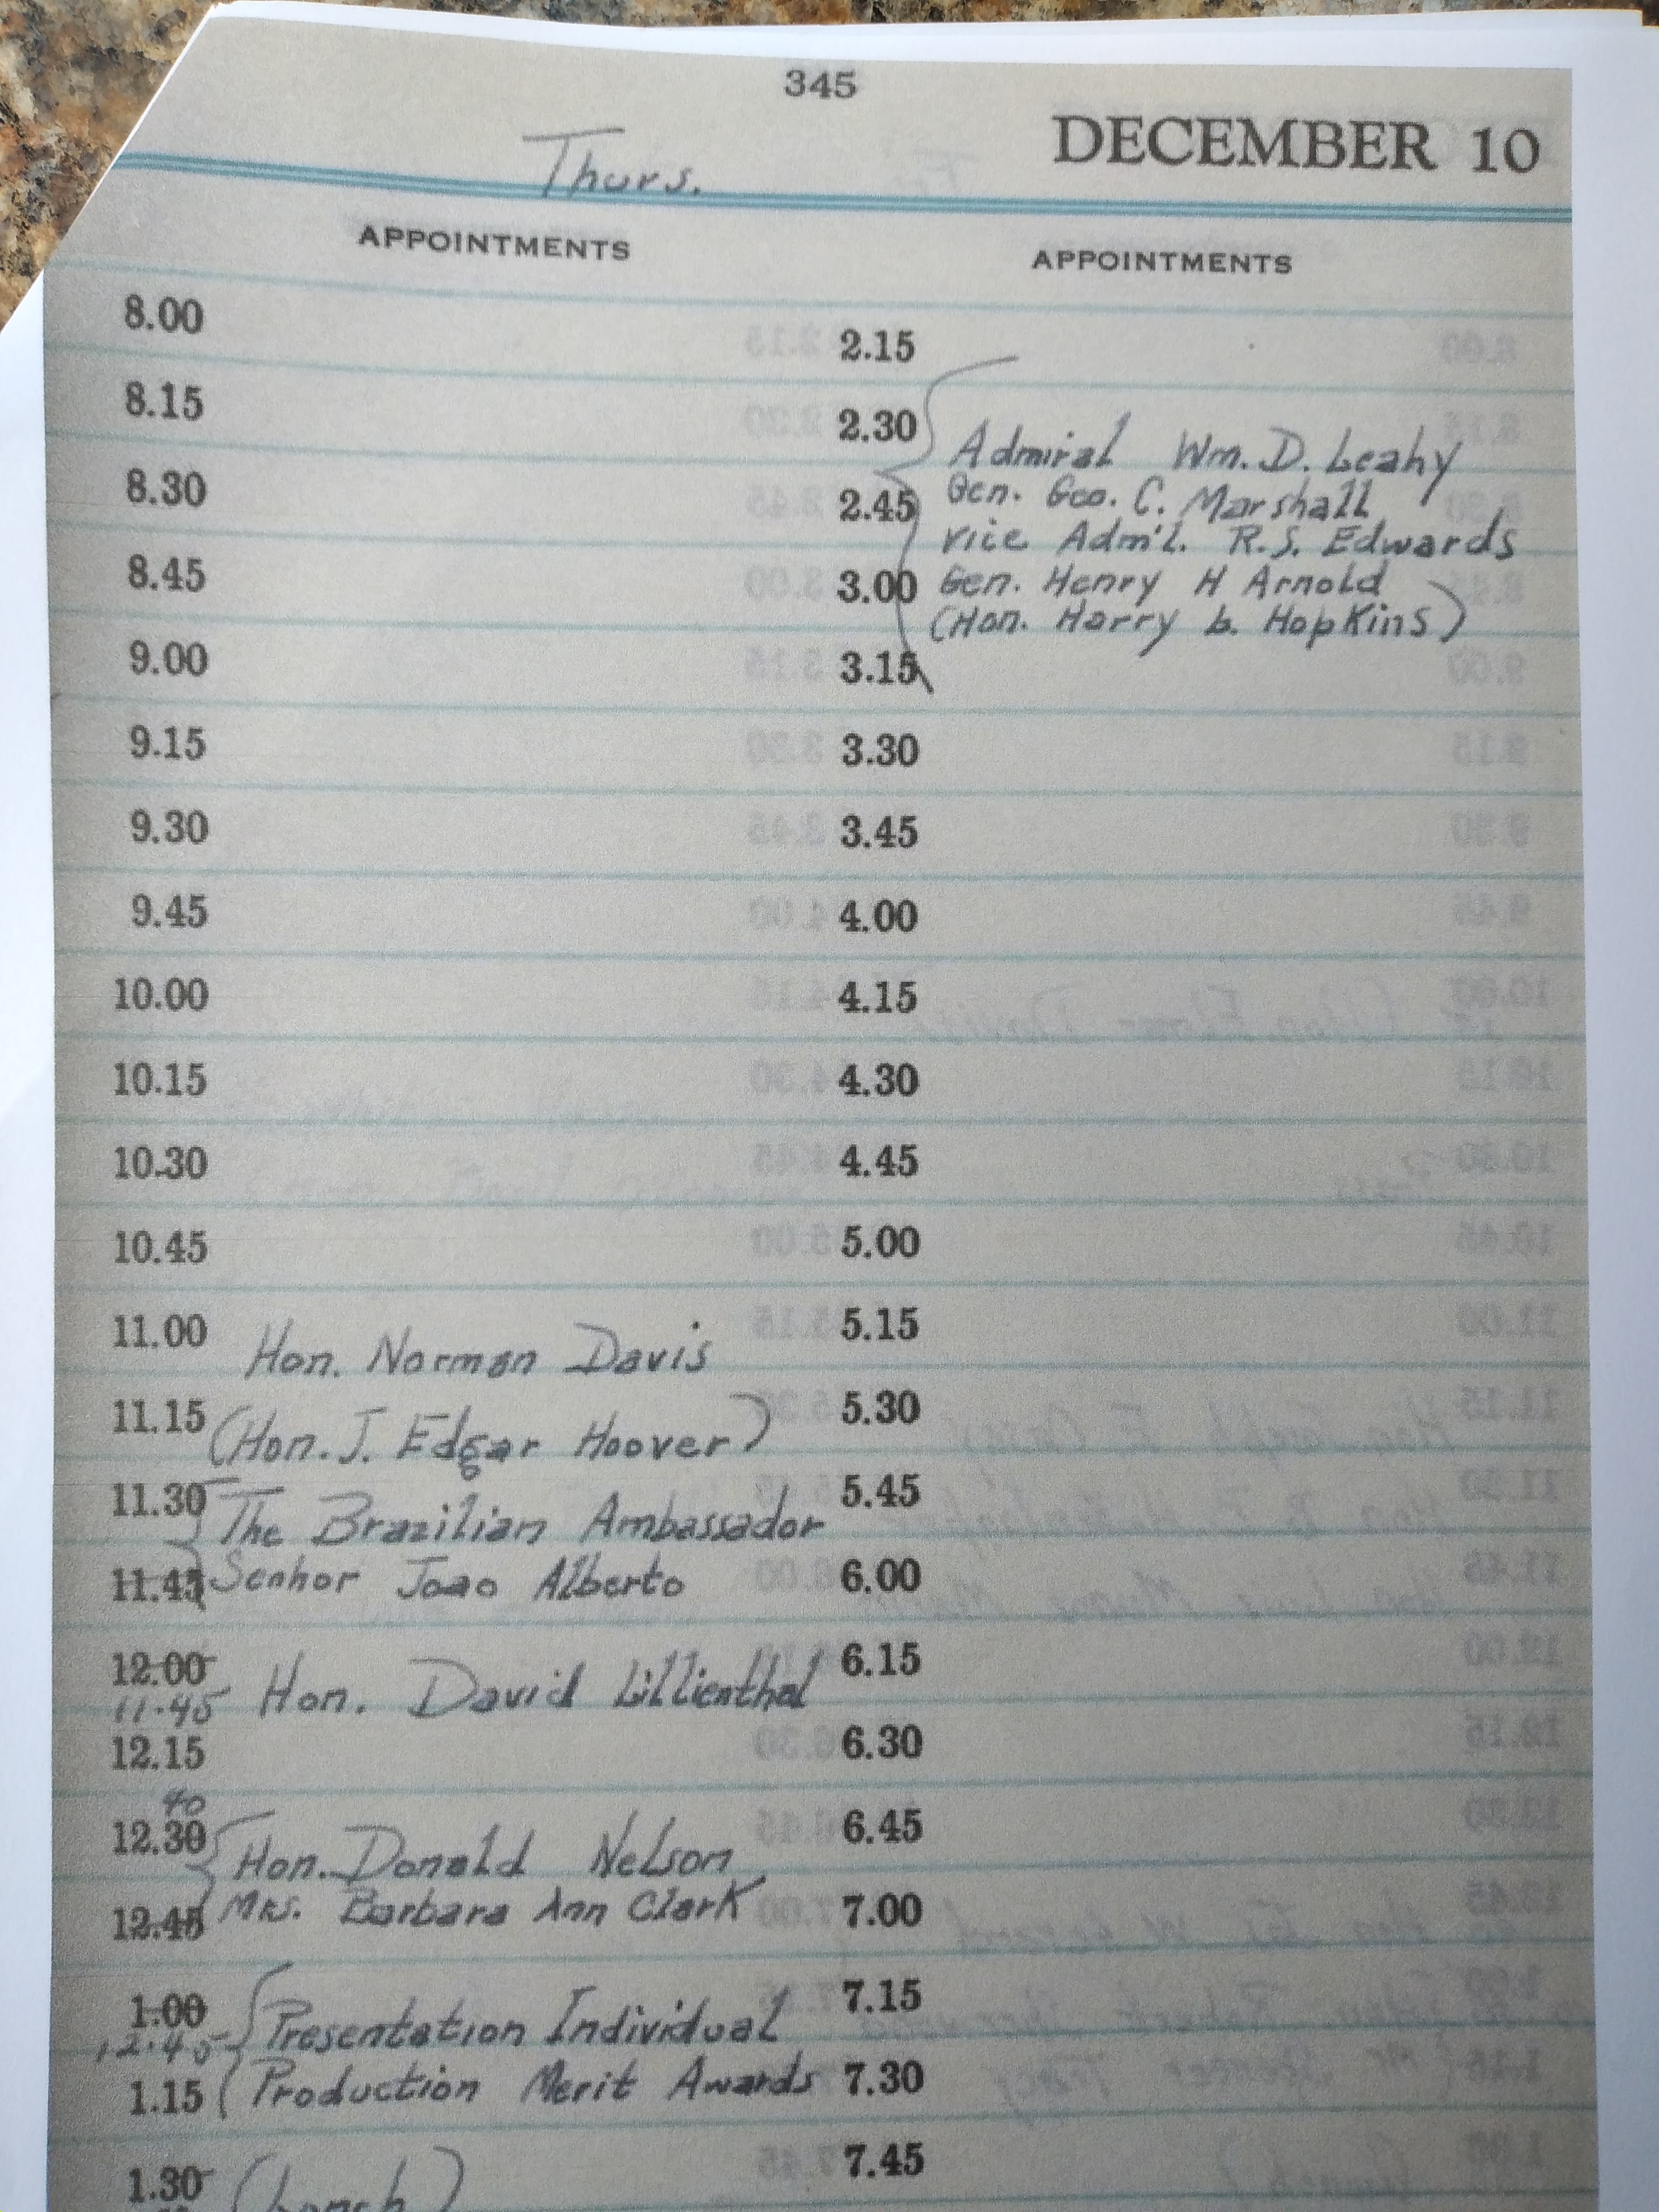 345
DECEMBER 10
Thurs.
APPOINTMENTS
8.00
8.15
8.30
8.45
9.00
9.15
9.30
9.45
10.00
10.15
10.30
10.45
11.00 Hon. Norman Davis
11.15 (Hon. J. Edgar Hoover)
11.30 The Brazilian Ambassador
11.45 Senhor Joao Alberto
12.00
11.45 Hon. David Lillienthal
12.15
40
12.30 Hon. Donald Nelson
12.45 Mrs. Barbara Ann Clark
1.00 Presentation Individual
12.45
1.15 Production Merit Awards
1.30 (Lunch)
APPOINTMENTS
2.15
2.30 Admiral Wm. D. Leahy
2.45 Gen. Geo. C. Marshall
Vice Adm'l. R.S. Edwards
3.00 Gen. Henry H Arnold
(Hon. Harry L. Hopkins)
3.15
3.30
3.45
4.00
4.15
4.30
4.45
5.00
5.15
5.30
5.45
6.00
6.15
6.30
6.45
7.00
7.15
7.30
7.45